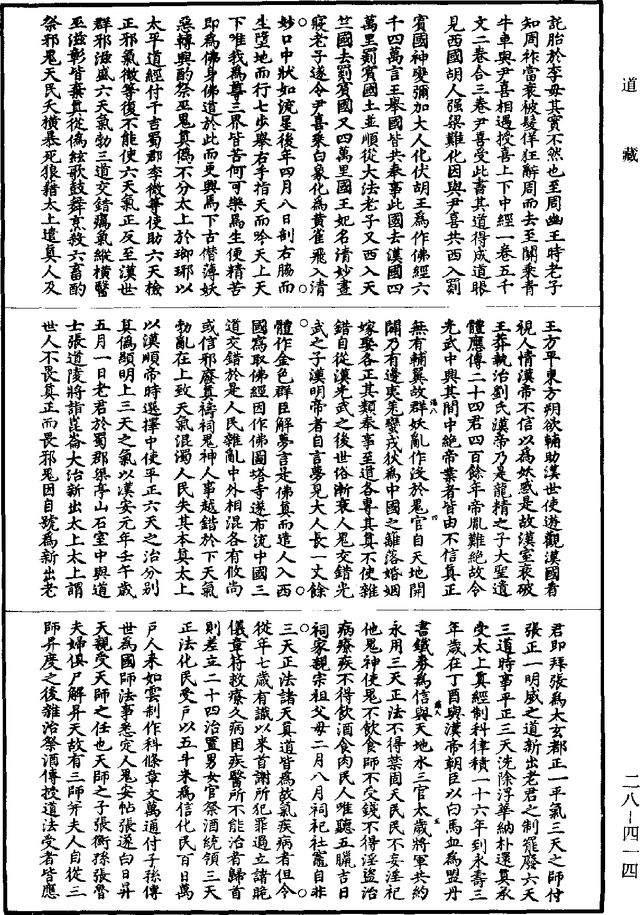 道藏
詫胎於李母其實不然也至周幽王時老子
知周祚當衰被髮佯狂辭周而去至關乘青
牛車與尹喜相遇授喜上下中經一卷五千
文二卷合三卷尹喜受此書其道得成道眼
見西國胡人强梁難化因與尹喜共西入罽
賓國神變彌加大人化伏胡王為作佛經六
千四萬言王舉國皆共奉事此國去漢國四
萬里罽賓國土並順從大法老子又西入天
竺國去罽賓國又四萬里國王妃名清妙晝
寢老子遂令尹喜乘白象化為黃雀飛入清
妙口中狀如流星後年四月八日剖右脇而
生墮地而行七步舉右手指天而吟天上天
下唯我為尊三界皆苦何可樂焉生便精苦
即為佛身佛道於此而更興焉下古僭薄妖
惡轉興酌祭巫鬼真偽不分太上於琅琊以
太平道經付干吉蜀郡李微等使助六天檢
正邪氣微等復不能使六天氣正反至漢世
群邪滋盛六天氣勃三道交錯癘氣縱橫醫
巫滋彰皆棄真從偽絃歌鼓舞烹殺六畜酌
祭邪鬼天民夭橫暴死狼籍太上遣真人及
王方平東方朔欲輔助漢世使遊觀漢國看
視人情漢帝不信以為妖惑是故漢室衰破
王莽執治劉氏漢帝乃是龍精之子大聖遺
體應傳二十四君四百餘年帝胤難絕故令
光武中興其間中絕帝業者皆由不信真正
無有輔翼故群妖亂作沒於鬼官自天地開
闢乃有邊夷羌蠻戎狄為中國之籬落婚姻
嫁娶各正其類奉事至道各專其真不使雜
錯自從漢光武之後世俗漸衰人鬼交錯光
武之子漢明帝者自言夢見大人長一丈餘
體作金色群臣解夢言是佛真而遣人入西
國寫取佛經因作佛圖塔寺遂布流中國三
道交錯於是人民雜亂中外相混各有攸尚
或信邪廢真禱祠鬼神人事越錯於下天氣
勃亂在上致天氣混濁人民失其本真太上
以漢順帝時選擇中使平正六天之治分別
真偽顯明上三天之氣以漢安元年壬午歲
五月一日老君於蜀郡渠亭山石室中與道
士張道陵將詣崑崙大治新出太上太上謂
世人不畏真正而畏邪鬼因自號為新出老
君即拜張為太玄都正一平氣三天之師付
張正一明威之道新出老君之制罷廢六天
三道時事平正三天洗除浮華納朴還真承
受太上真經制科律積一十六年到永壽三
年歲在丁酉與漢帝朝臣以白馬血為盟丹
書鐵券為信與天地水三官太歲將軍共約
永用三天正法不得禁固天民民不妄淫祀
他鬼神使鬼不飲食師不受錢不得淫盜治
病療疾不得飲酒食肉民人唯聽五臘吉日
祠家親宗祖父母二月八月祠祀社竈自非
三天正法諸天真道皆為故氣疾病者但令
從年七歲有識以來首謝所犯罪過立諸
儀章符救療久病困疾醫所不能治者歸首
則差立二十四治置男女官祭酒統領三天
正法化民受戶以五斗米為信化民百日萬
戶人來如雲制作科條章文萬通付子孫傳
世為國師法事悉定人鬼安帖張遂白日昇
天親受天師之任也天師之子張衡孫張魯
夫婦俱尸解昇天故有三師并夫人自從三
師昇度之後雜治祭酒傳授道法受者皆應
二八-四一四